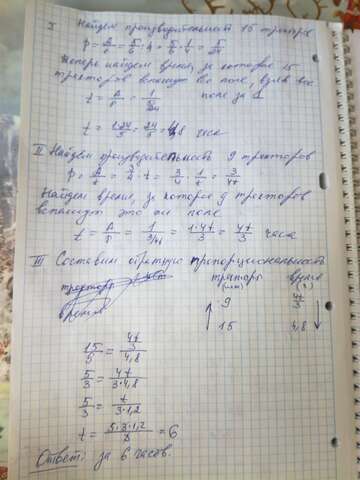 I Найдем производительность 15 тракторов
P = A/t = 5/6 : 4 = 5/6 · 1/4 = 5/24
Теперь найдем время, за которое 15
тракторов вспашут все поле, взяв все
t = A/P = 1/(5/24) поле за 1
t = 1·24/5 = 24/5 = 4,8 часа
II Найдем производительность 9 тракторов
P = A/t = 3/4 : t = 3/4 · 1/t = 3/4t
Найдем время, за которое 9 тракторов
вспашут это же поле
t = A/P = 1/(3/4t) = 1·4t/3 = 4t/3 часа
III Составим обратную пропорциональность
трактора время
(шт) (ч)
↑ 9 4t/3 ↓
15 4,8
15/9 = (4t/3)/4,8
5/3 = 4t/3·4,8
5/3 = t/3·1,2
t = 5·3·1,2/3 = 6
Ответ: за 6 часов.